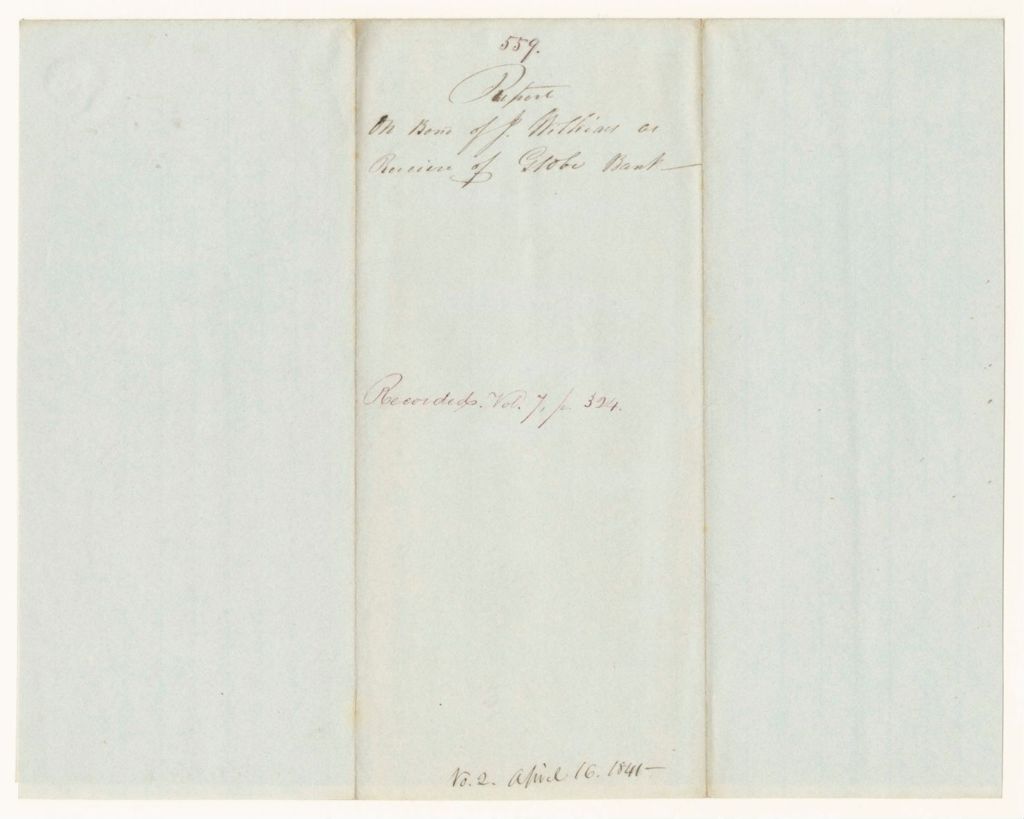 559.
Report
On Bond of J. Wilkins as
Receiver of Globe Bank —
Recorded. Vol. 7, p. 324.
No. 2. April 16. 1841 —